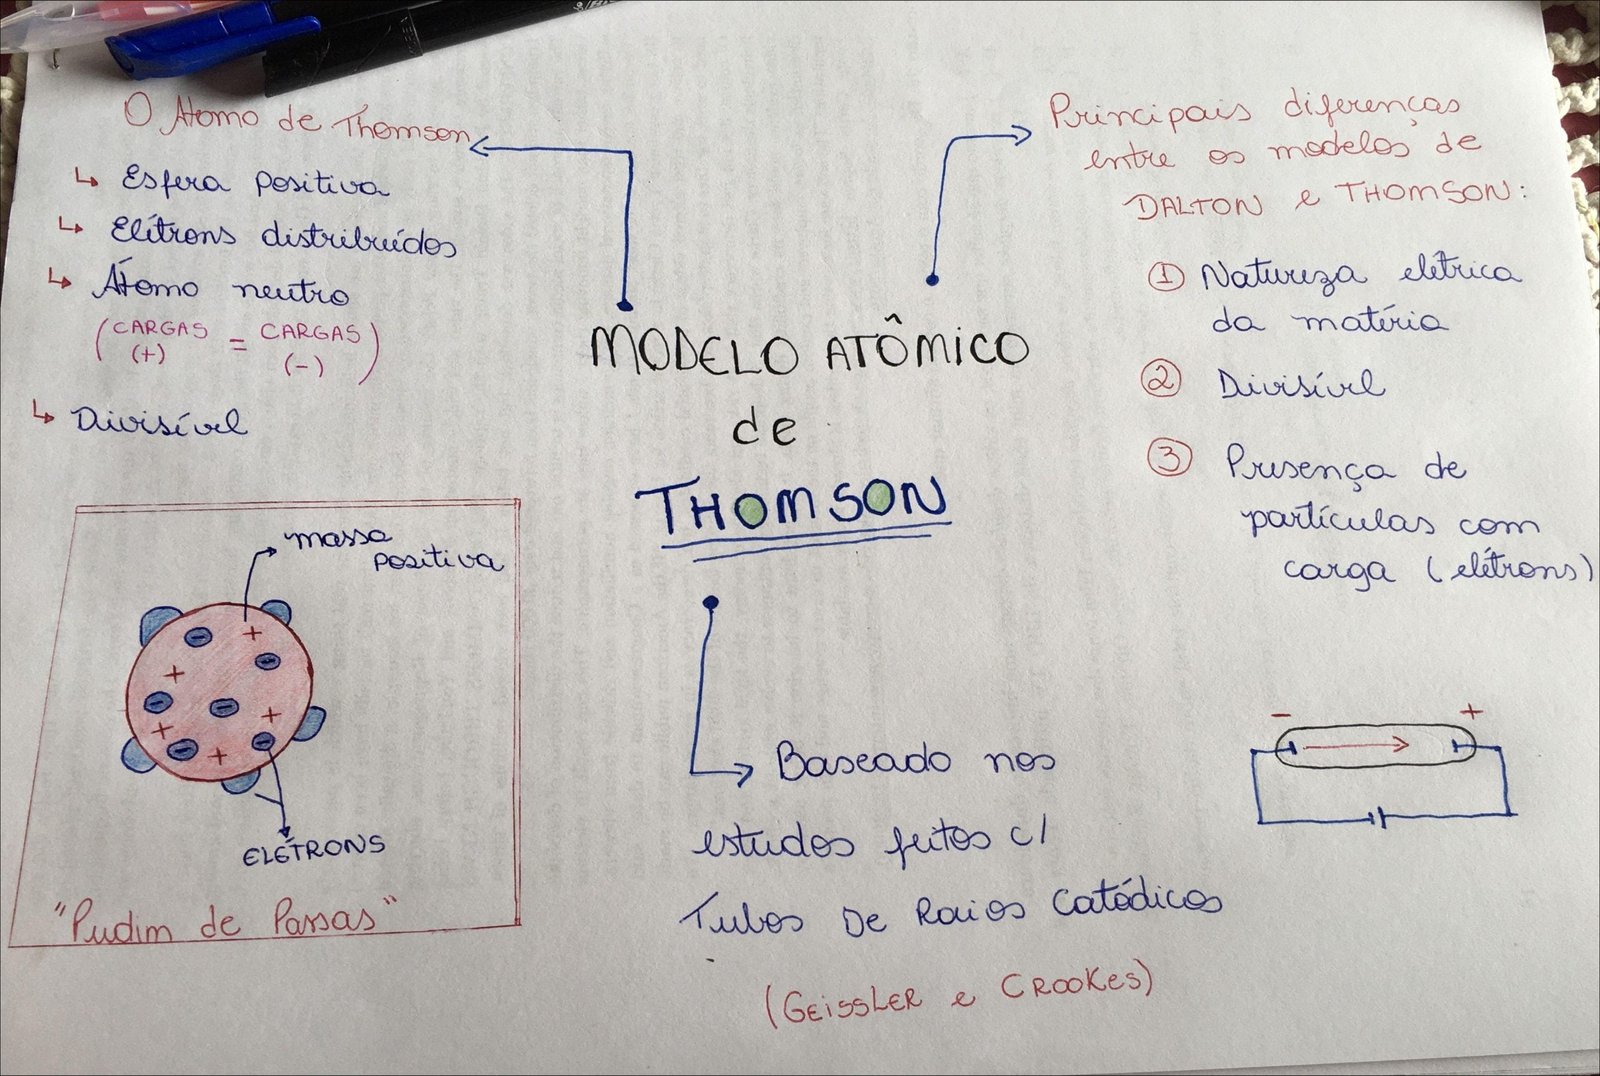 O Átomo de Thomson
↳ Esfera positiva
↳ Elétrons distribuídos
↳ Átomo neutro
(CARGAS = CARGAS)
(+) (-)
↳ Divisível
massa
positiva
- + - + - - + + - + -
ELÉTRONS
"Pudim de Passas"
MODELO ATÔMICO
de
THOMSON
Baseado nos
estudos feitos c/
Tubos De Raios Catódicos
(GEISSLER e CROOKES)
Principais diferenças
entre os modelos de
DALTON e THOMSON:
① Natureza elétrica
da matéria
② Divisível
③ Presença de
partículas com
carga (elétrons)
- +